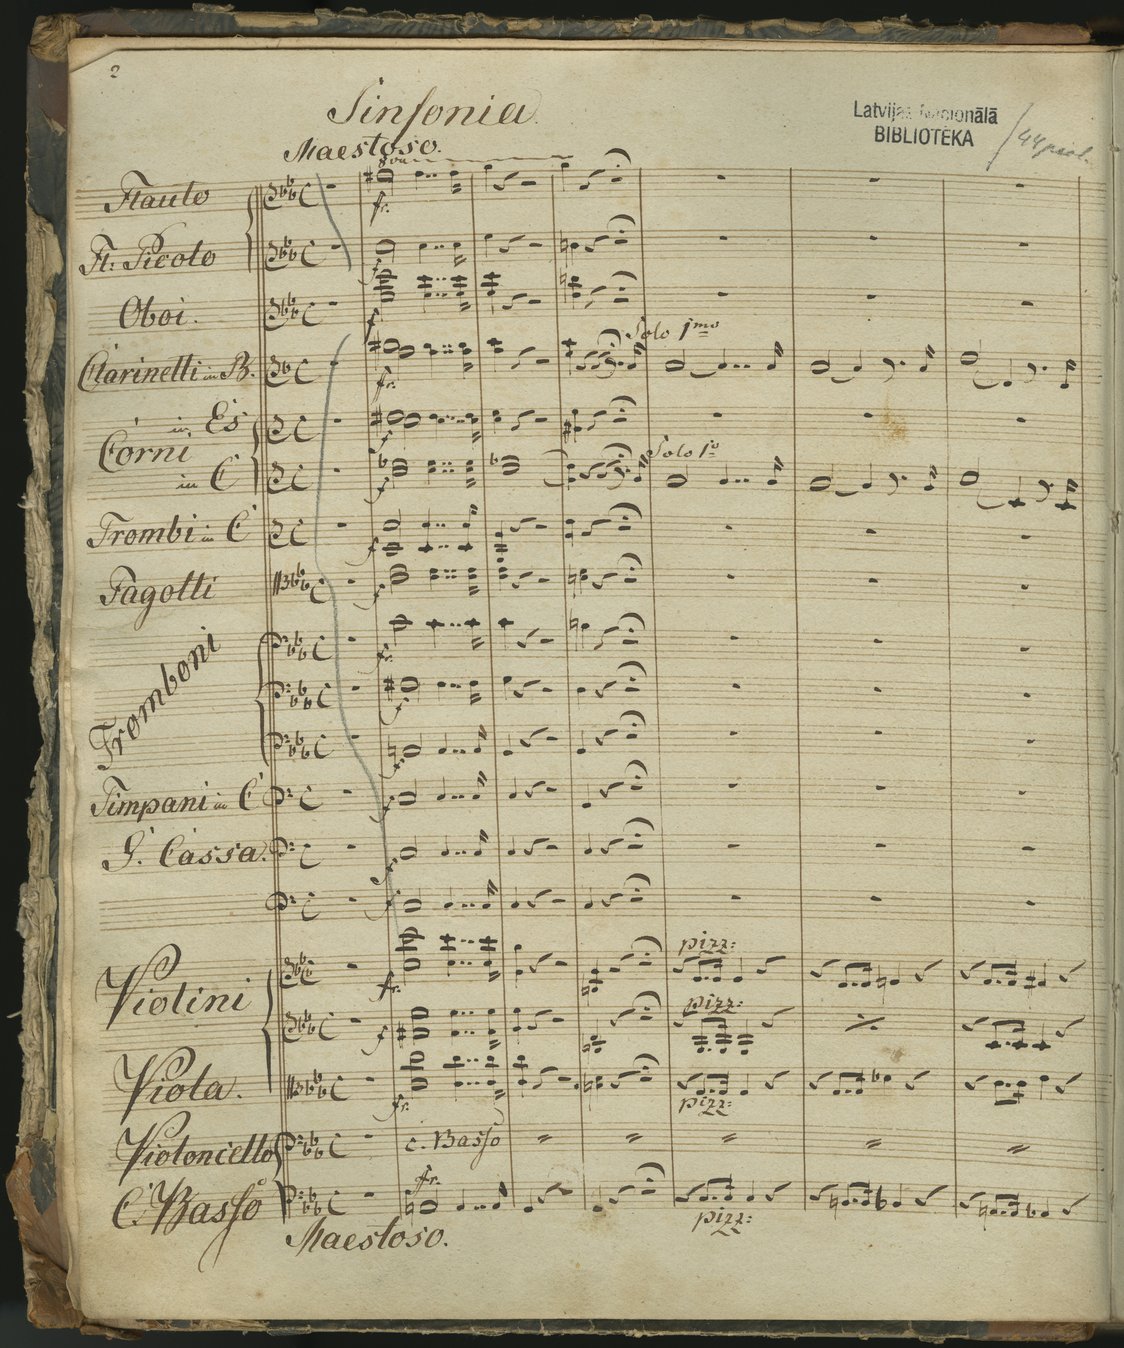 2
Sinfonia
Latvijas Nacionālā
BIBLIOTĒKA
Maestoso.
8va
Flauto
fr.
Ft: Picolo
f
Oboi.
f
Solo 1mo
Clarinetti in B.
fr.
in Es
Corni
f
Solo 1o
in C
f
Trombi in C
f
Fagotti
f
Tromboni
fr.
f
f
Timpani in C
f
G. Cassa.
f
f
pizz:
Violini
fr.
pizz:
f
Viola.
fr.
pizz:
Violoncello
c. Basso
fr.
C. Basso
pizz:
Maestoso.